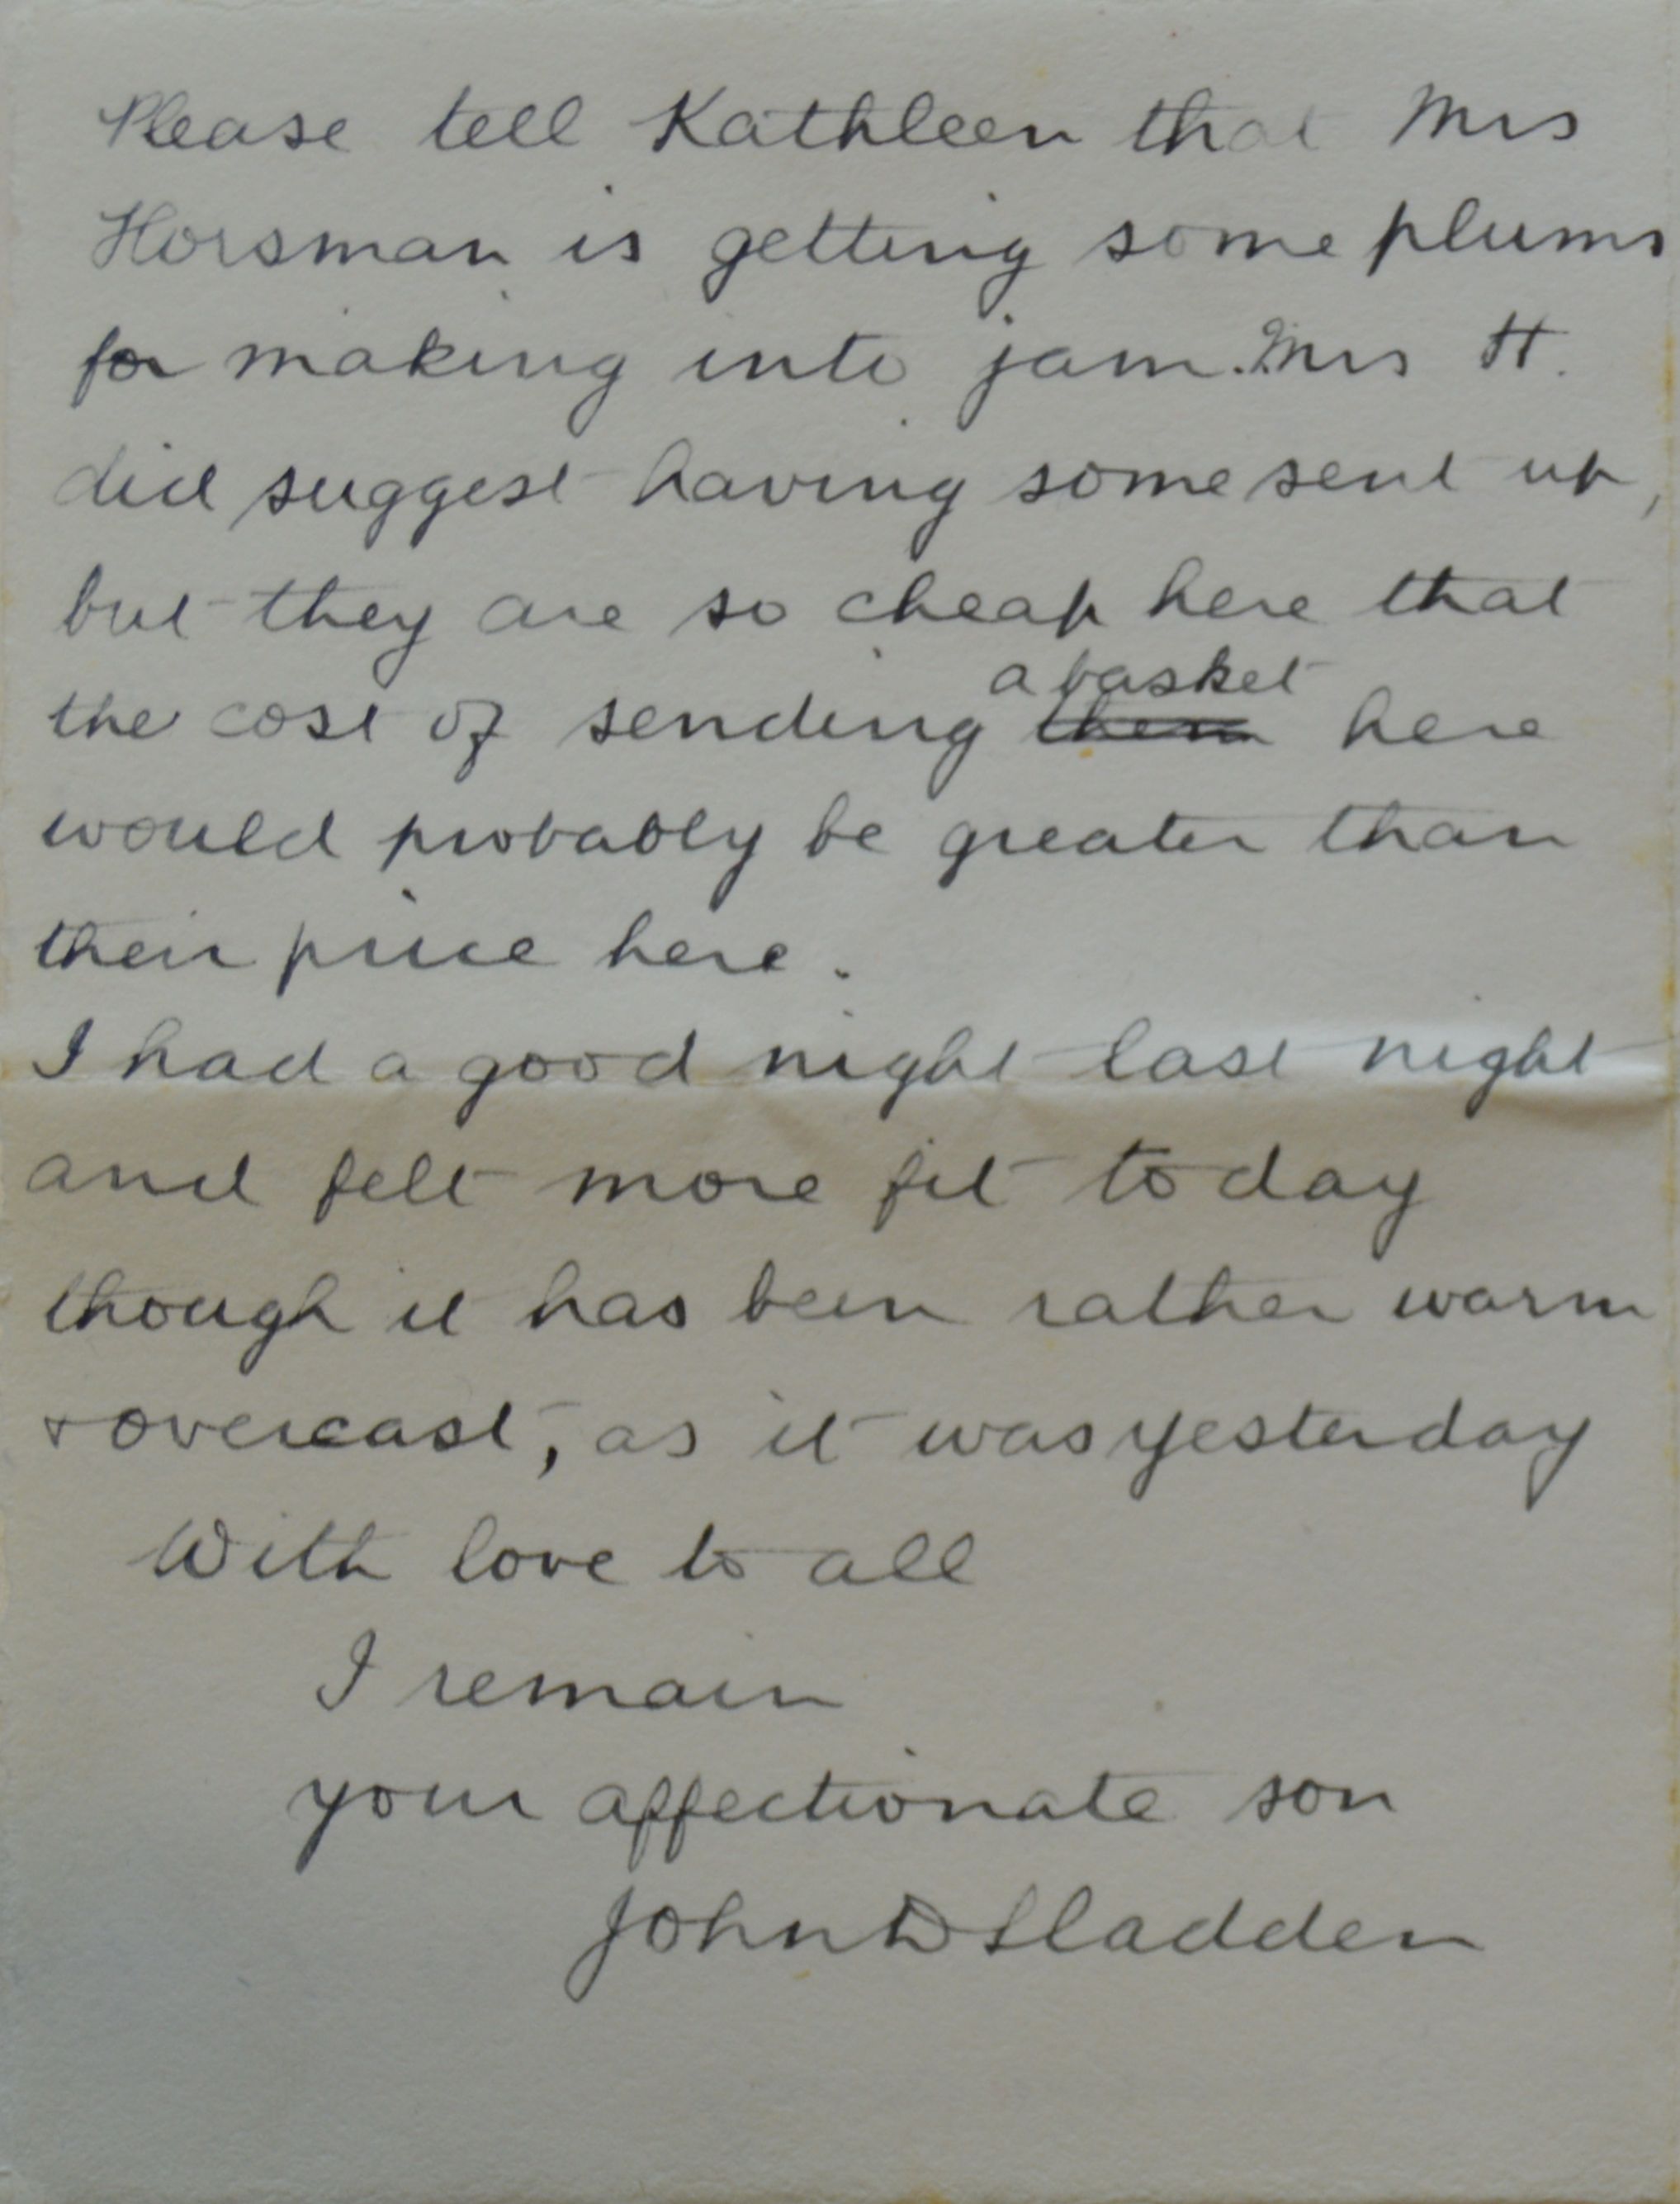 Please tell Kathleen that Mrs
Horsman is getting some plums
for making into jam. Mrs H.
did suggest having some sent up,
but they are so cheap here that
a basket
the cost of sending them here
would probably be greater than
their price here.
I had a good night last night
and felt more fit today
though it has been rather warm
& overcast, as it was yesterday
With love to all
I remain
your affectionate son
John D Sladden